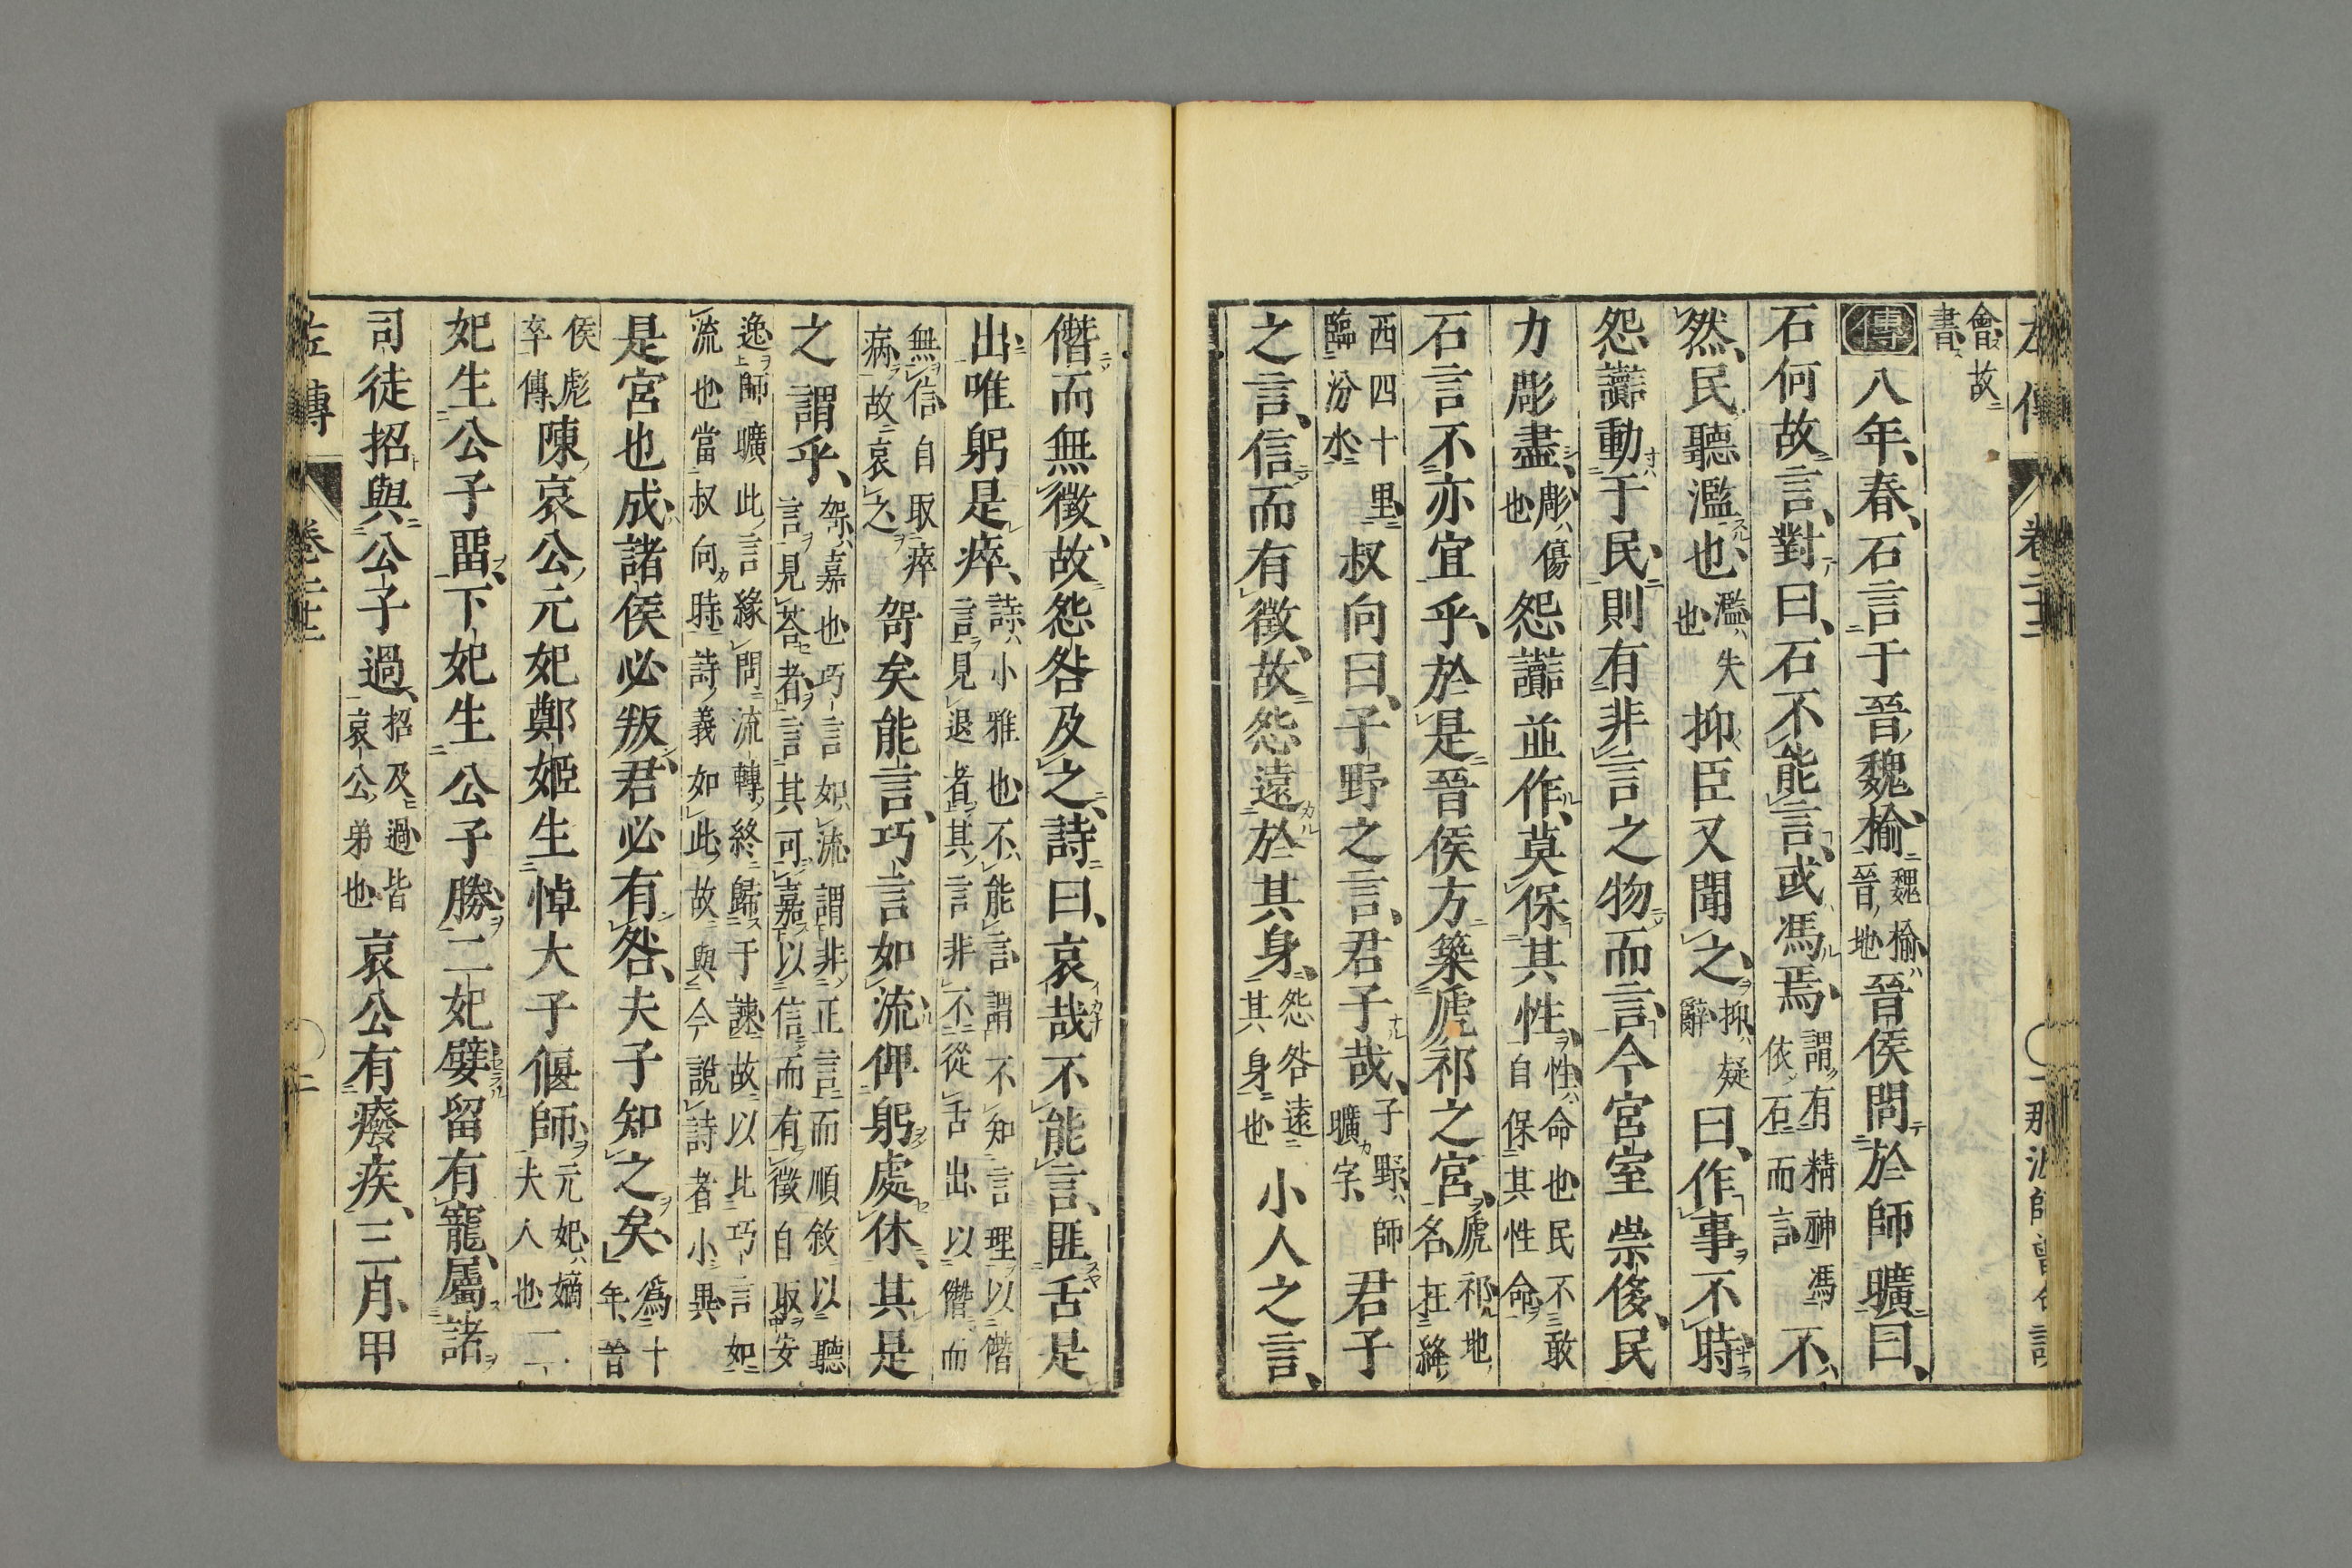 左傳 卷二十二 二 那波師曾句讀
會故
書
傳八年春石言于晉魏榆魏榆晉地晉侯問於師曠曰
石何故言對曰石不能言或馮焉謂有精神馮依石而言不
然民聽濫也濫失也抑臣又聞之抑疑辭曰作事不時
怨讟動于民則有非言之物而言今宮室崇侈民
力彫盡彫傷也怨讟並作莫保其性性命也民不敢自保其性命
石言不亦宜乎於是晉侯方築虒祁之宮虒祁地名在絳
西四十里臨汾水叔向曰子野之言君子哉子野師曠字君子
之言信而有徵故怨遠於其身怨咎遠其身也小人之言
僭而無徵故怨咎及之詩曰哀哉不能言匪舌是
出唯躬是瘁詩小雅也不能言謂不知言理以僭言見退者其言非不從舌出以僭而
無信自取瘁病故哀之哿矣能言巧言如流俾躬處休其是
之謂乎哿嘉也巧言如流謂非正言而順敘以聽言見荅者言其可嘉以信而有徵自取安
逸師曠此言緣問流轉終歸于諫故以比巧言如流也當叔向時詩義如此故與今說詩者小異
是宮也成諸侯必叛君必有咎夫子知之矣為十年晉
侯彪卒傳陳哀公元妃鄭姬生悼大子偃師元妃嫡夫人也二
妃生公子畱下妃生公子勝二妃嬖留有寵屬諸
司徒招與公子過招及過皆哀公弟也哀公有癈疾三月甲
左傳 卷二十二 二